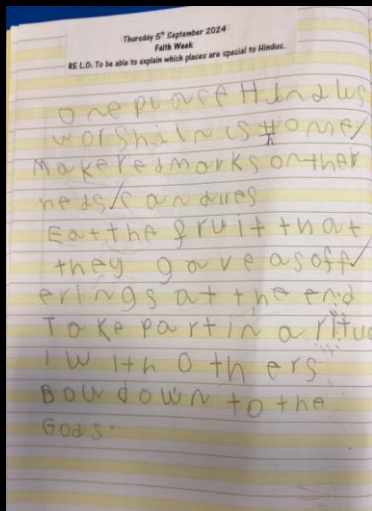 Thursday 5th September 2024
Faith Week
RE L.O: To be able to explain which places are special to Hindus.
one place Hindus
worship in is Home/
Make red marks on ther
heds/candles
Eat the fruit that
they gave as off/
erings at the end
Take part in a ritua
l with others
Bow down to the
Gods.